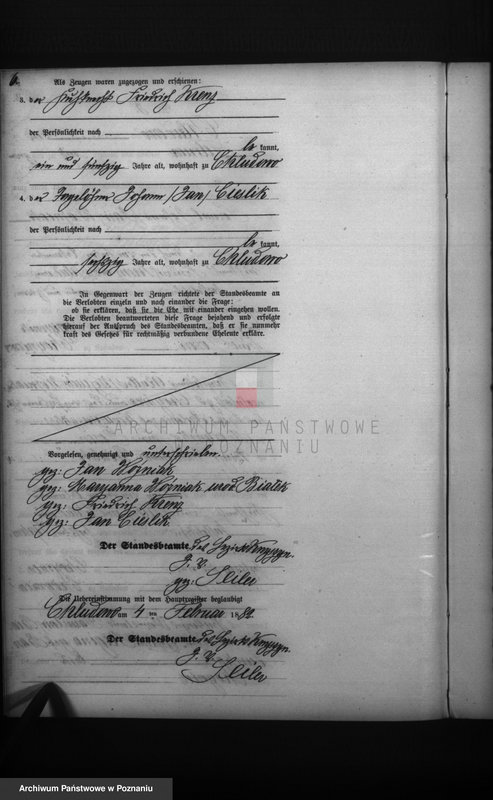 6.
Als Zeugen waren zugezogen und erschienen:
3. der Friedrich Krenz
der Persönlichkeit nach
be kannt,
ein und fünfzig Jahre alt, wohnhaft zu Chludowo
4. der Tagelöhner Johann /Jan/ Cieslik
der Persönlichkeit nach
be kannt,
sechzig Jahre alt, wohnhaft zu Chludowo
In Gegenwart der Zeugen richtete der Standesbeamte an
die Verlobten einzeln und nach einander die Frage:
ob sie erklären, daß sie die Ehe mit einander eingehen wollen.
Die Verlobten beantworteten diese Frage bejahend und erfolgte
hierauf der Ausspruch des Standesbeamten, daß er sie nunmehr
kraft des Gesetzes für rechtmäßig verbundene Eheleute erkläre.
ARCHIWUM PAŃSTWOWE
W POZNANIU
Vorgelesen, genehmigt und unterschrieben.
gez: Jan Woźniak
gez: Maryanna Woźniak urod. Białek
gez: Friedrich Krenz
gez: Jan Cieslik
Der Standesbeamte
gez: Seiler
Die Uebereinstimmung mit dem Hauptregister beglaubigt
Chludowo am 4 ten Februar 188
Der Standesbeamte
Seiler
Archiwum Państwowe w Poznaniu